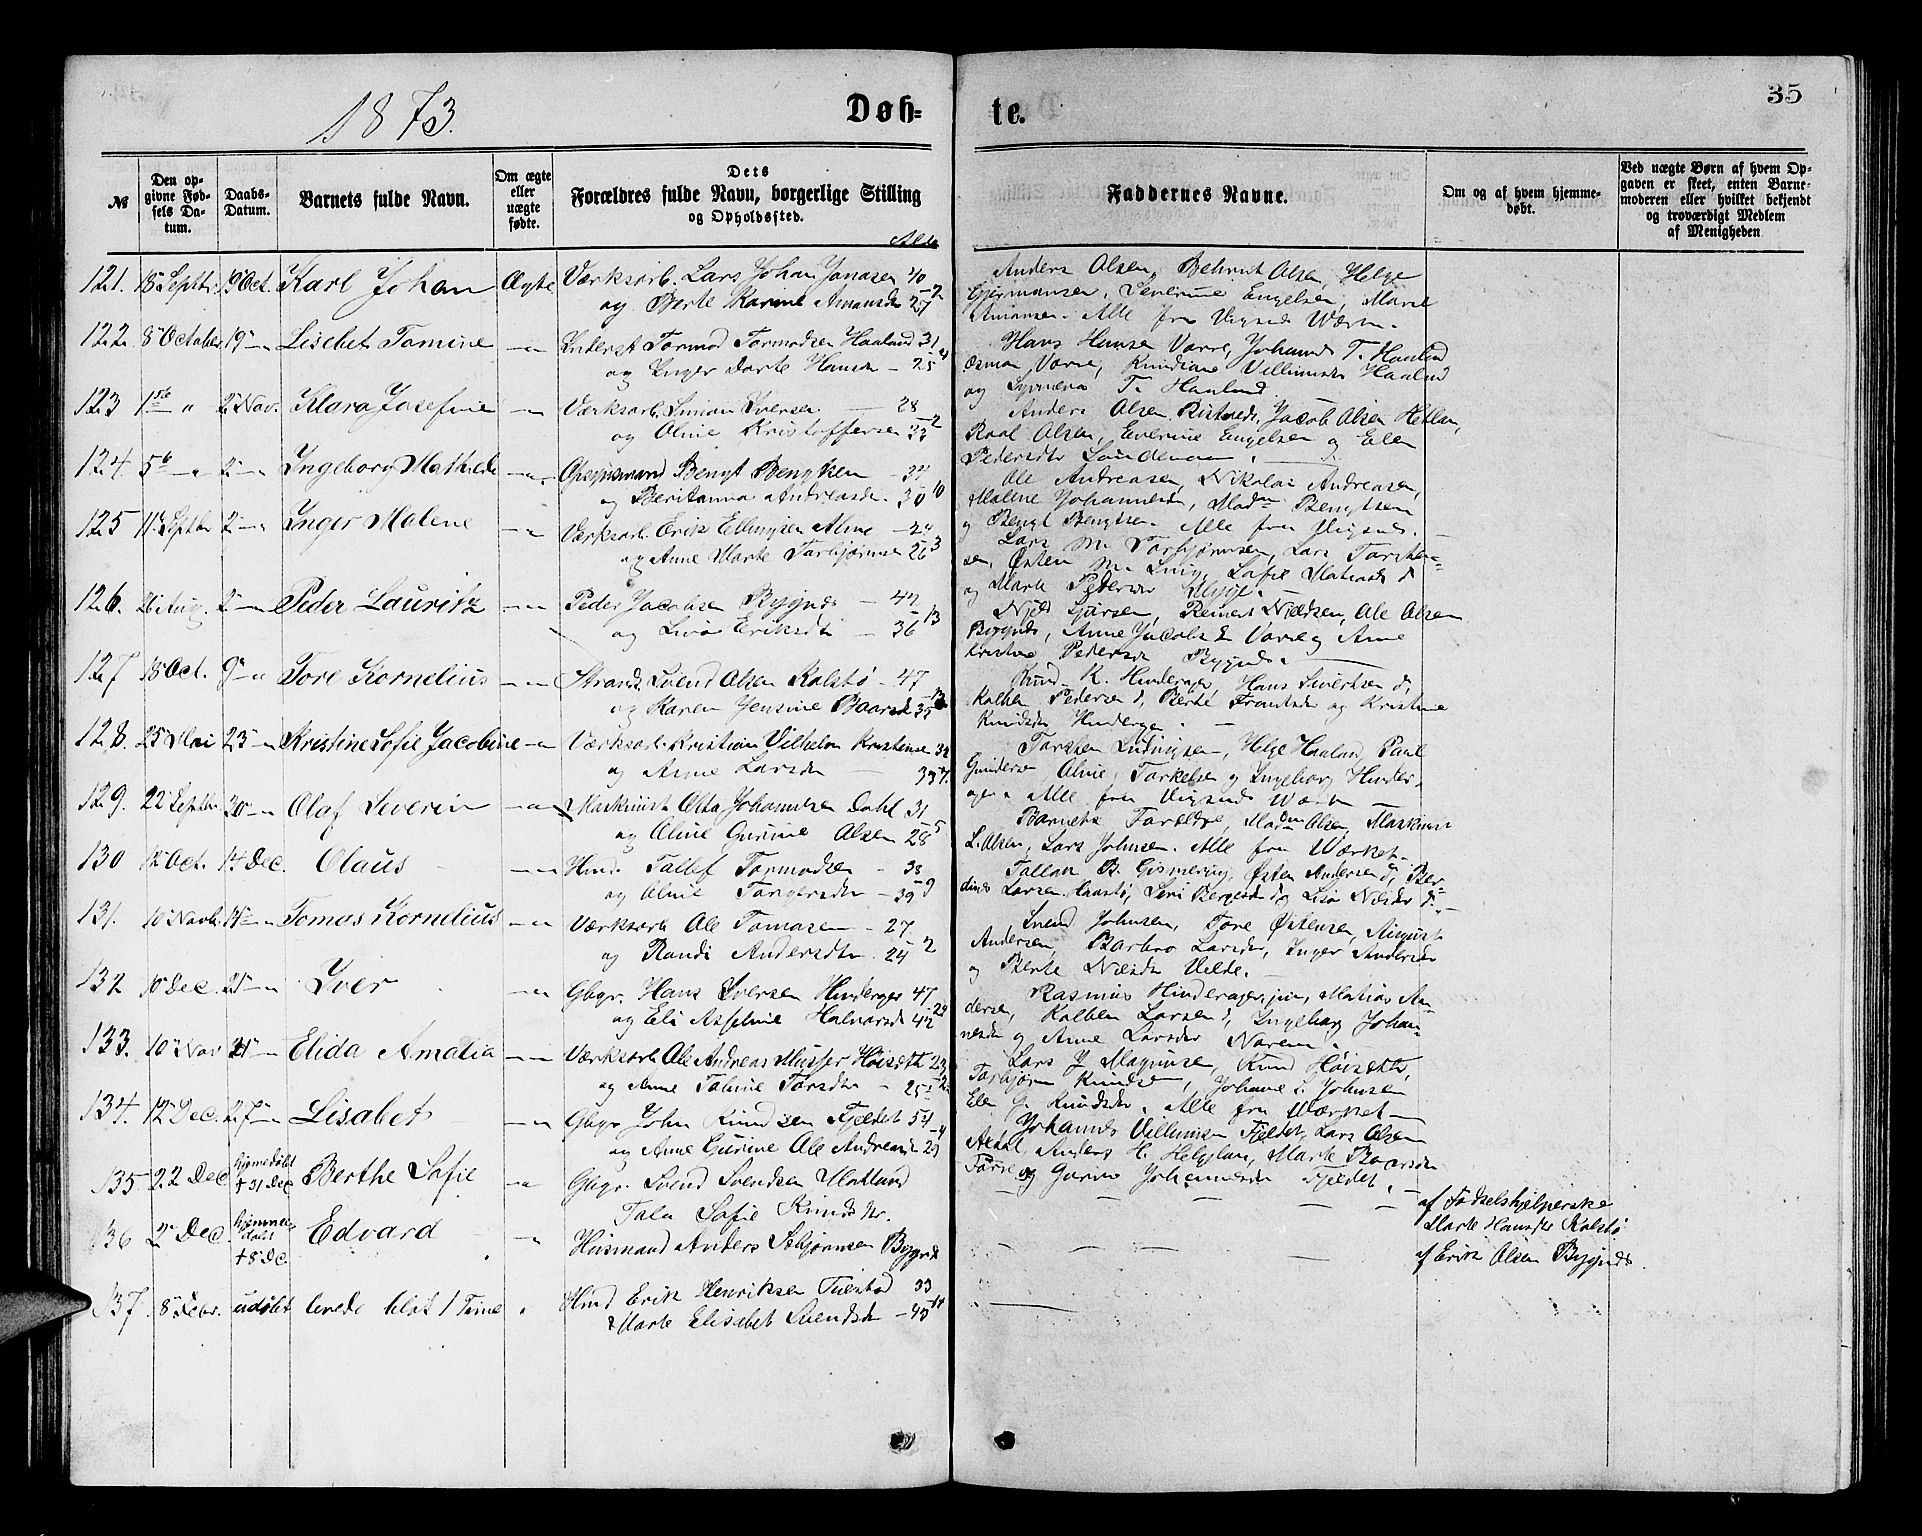 1873.
Døb-
te.
35
№
Den op-
givne Fød-
sels Da-
tum.
Daabs-
Datum.
Barnets fulde Navn.
Om ægte
eller
uægte
fødte.
Dets
Forældres fulde Navn, borgerlige Stilling
og Opholdssted.
Faddernes Navne.
Om og af hvem hjemme-
døbt.
Ved uægte Børn af hvem Op-
gaven er skeet, enten Barne-
moderen eller hvilket bekjendt
og troværdigt Medlem
af Menigheden
121. 18 Septbr 19 Oct. Karl Johan Ægte Værksarb. Lars Johan Jonasen 40
og Berte Karine Amansdr 27 2
Anders Olsen, Behrent Olsen, Helge
Engelsen, Marie
Amansen. Alle fra Vigsnes Værk.
122. 8 October 19 Lisebet Tomine Tormod Tormodsen Haaland 31
og Inger Dorte Hansdr 25 4
Hans Hansen Vorre, Johannes T. Haaland
Osmon Vorre, Knudiane Villumsdr Haaland
og T. Haaland
123 1ste " 2 Nov. Klara Josefine Værksarb. Simon Iversen 28
og Oline Kristoffersen 33 2
Anders Olsen Ristved, Jacob Olsen Hetlan,
Roal Olsen, Severine Engelsen og Elen
Pedersdtr
124. 5te " 2 Ingeborg Mathilde Opsynsmand Bengt Bengtsen 34
og Beritanna Andreasdr. 30 10
Ole Andreasen, Nikolai Andreasen,
Malene Johannesdr, Madm Bengtsen
og Bengt Bengtsen. Alle fra Vigsnes.
125 11 Septbr 2 Inger Malene Værksarb. Erik Ellingsen Alme 24
og Anne Marte Torbjørnsen 26 3
Lars M. Torbjørnsen, Lars Torsten-
sen, Østen M. Ling, Sofie Mathiasdr
og Marte Pedersdr
126. 26 Aug. 2 Peder Lauritz Peder Jacobsen Bygnes 47
og Liva Eriksdtr 36 13
Njæl Sjursen, Reinert Nielsen, Ole Olsen
Bygnes, Anne Jacobsdr Vorre og Anne
Kristine Pedersdr Bygnes.
127 18 Oct. 9 Tore Kornelius Strands. Svend Olsen Kolstø 47
og Karen Jensine Baarsdr 35
Knud K. Hinderager, Hans Sivertsen d.,
Kolben Pedersen d, Berte og Kristine
Knudsdr Hinderager.
128. 25 Mai 23 Kristine Sofie Jacobine Værksarb. Kristian Vilhelm Kristensen 32
og Anne Larsdr 33 7.
Torsten Ludvigsen, Helge Haaland, Paul
Gundersen, Oline Torkelsen og Ingeborg Hinder-
ager. Alle fra Vigsnes Værk
129. 22 Septbr. 30 Olaf Severin Maskinist Otto Johannesen Dahl 31
og Oline Gurine Olsen 28 5
Barnets Forældre, Madm Olsen, Maskinist
L. Olsen, Lars Johnsen. Alle fra Værket.
130 12 Oct. 14 Dec. Olaus Hmd. Tollef Tormodsen 38
og Oline Torgersdr 39 9
Tollan B. Gismervig, Østen Andersen d, Ber-
dines Larsen Haastø, Siri Bergesdr d og Lisa d.
131. 10 Novb. 14 Tomas Kornelius Værksarb Ole Tomasen 27
og Randi Andersdtr 24 2
Svend Johnsen, Tore Østensen, August
Andersen, Barbro Larsdr, Inger Andersdr
og Berte Nilsdr Velde.
132 10 Dec. 21 Iver Gbgr. Hans Iversen Hinderager 47
og Eli Asseline Halvorsdr 42 20
Rasmus Hinderager jun, Matias An-
dersen, Kolben Larsen d, Ingeborg Johan-
nesdr og Anne Larsdr Norem.
133. 10 Nov 21 Elida Amalia Værksarb. Ole Andreas Høiseth 23
og Anne Tomine Torsdtr 25
Lars J. Magnusen, Knud Høiseth,
Torbjørn Knudsen, Johanne L. Johnsen
Elen G. Knudsdr. Alle fra Værket
134. 12 Dec. 27 Lisabet Gbgr John Knudsen Fjeldet 54
og Anne Gurine Ole Andreasdr 29
Johannes Villumsen Fjeldet, Lars Olsen
Anders H. Helgeland, Marte Baarsdr
og Gurine Johannesdr Fjeldet.
135 22 Dec hjemedøbt † 31 Dec Berthe Sofie Gbgr. Svend Svendsen Matland
Tala Sofie Knudsdr.
af Fødselshjelperske
Marte Hansdtr Kolstø
136 2 Dec. hjemme-
døbt
† 8 Dec. Edvard Husmand Anders Asbjørnsen Bygnes
af Erik Olsen Bygnes
137. 8 Febr. udøbt levede blot 1 Time Hmd Erik Henriksen Tuestad 33
& Marte Elisabet Svendsdr 45